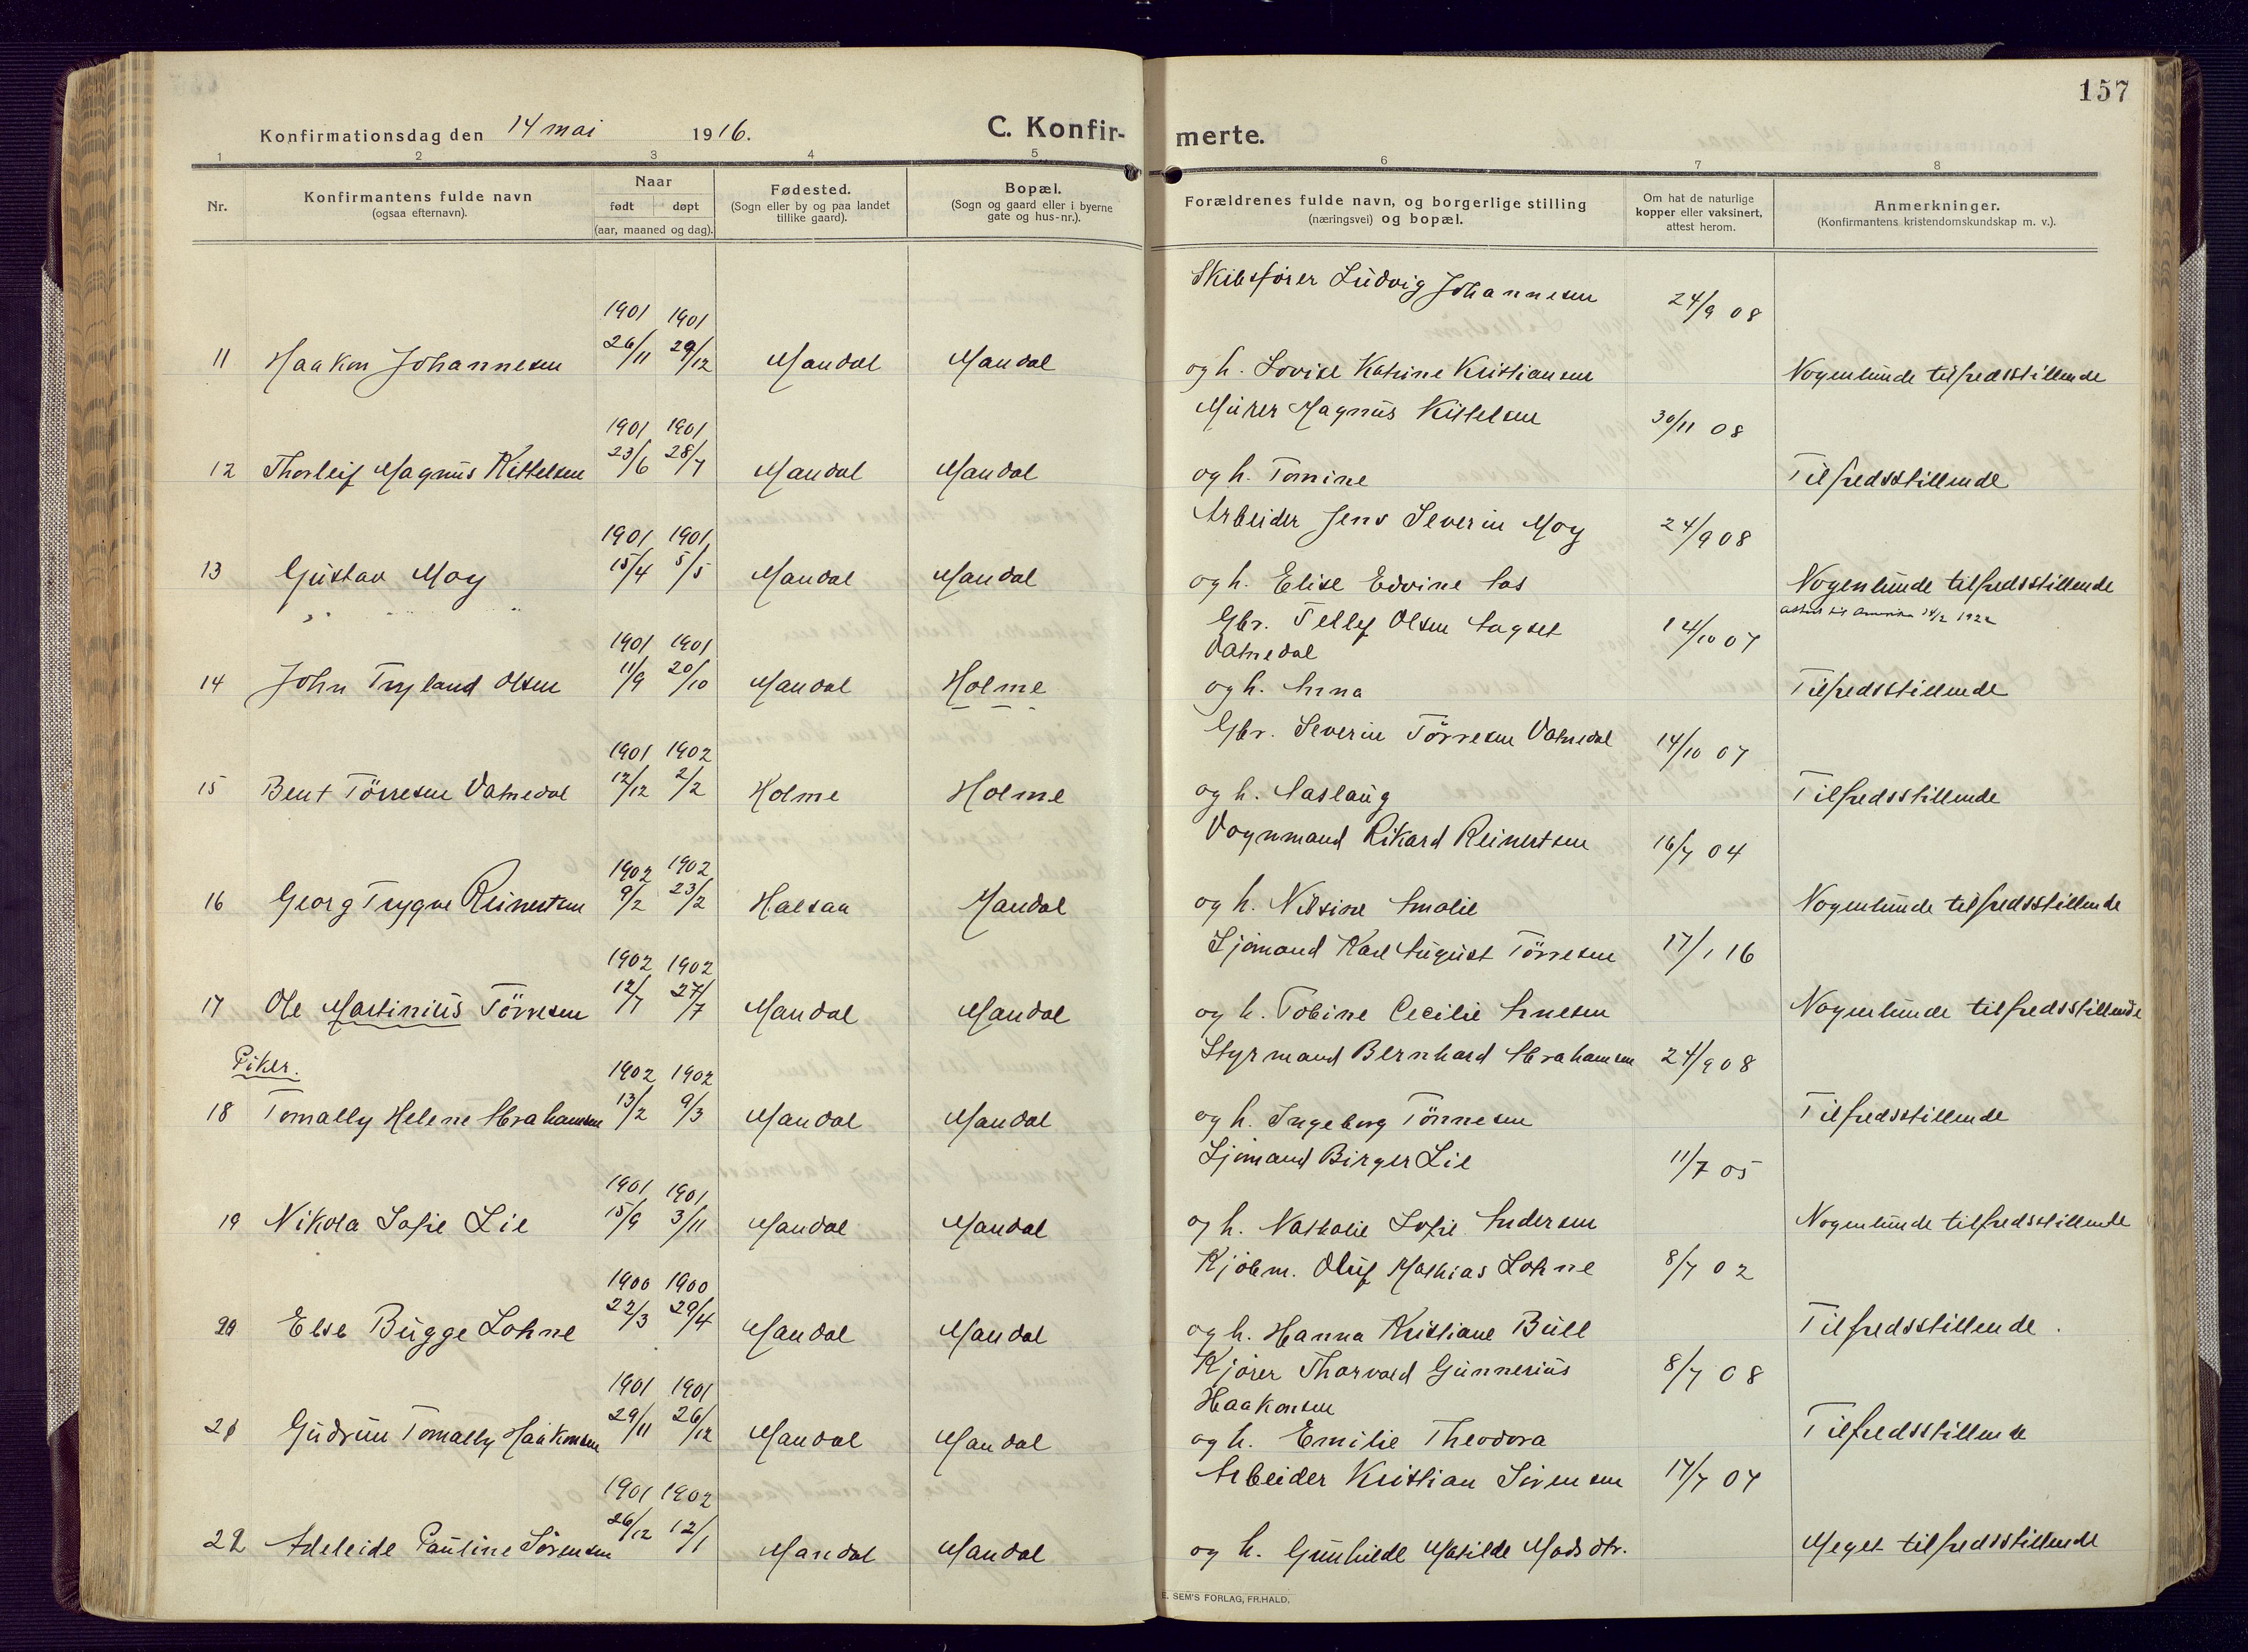 157
Konfirmationsdag den 14 mai 1916.
C. Konfirmerte.
1 2 3 4 5 6 7 8
Nr.
Konfirmantens fulde navn
(ogsaa efternavn).
Naar
født døpt
(aar, maaned og dag).
Fødested.
(Sogn eller by og paa landet
tillike gaard).
Bopæl.
(Sogn og gaard eller i byerne
gate og hus-nr.).
Forældrenes fulde navn, og borgerlige stilling
(næringsvei) og bopæl.
Om hat de naturlige
kopper eller vaksinert,
attest herom.
Anmerkninger.
(Konfirmantens kristendomskundskap m. v.).
Skibsfører Ludvig Johannesen 24/9 08
1901 1901
11 Haakon Johannesen 26/11 29/12 Mandal Mandal og h. Lovise Katrine Kristiansen Nogenlunde tilfredsstillende
Murer Magnus Kittelsen 30/11 08
1901 1901
12 Thorleif Magnus Kittelsen 23/6 28/7 Mandal Mandal og h. Tomine Tilfredsstillende
Arbeider Jens Severin Moy 24/9 08
1901 1901
13 Gustav Moy 15/4 5/5 Mandal Mandal og h. Elise Edvine Aas Nogenlunde tilfredsstillende
Attest til Amerika 14/2 1922
Gbr. Tellef Olsen 14/10 07
Vatnedal
1901 1901
14 John Tryland Olsen 11/9 20/10 Mandal Holme og h. Anna Tilfredsstillende
Gbr. Severin Törresen Vatnedal 14/10 07
1901 1902
15 Bent Törresen Vatnedal 12/12 2/2 Holme Holme og h. Aaslaug Tilfredsstillende
Vognmand Rikard Reinertsen 16/7 04
1902 1902
16 Georg Trygve Reinertsen 9/2 23/2 Halsaa Mandal og h. Nilsine Amalie Nogenlunde tilfredsstillende
Sjømand Karl August Törresen 17/1 16
1902 1902
17 Ole Martinius Törresen 12/7 27/7 Mandal Mandal og h. Tobine Cecilie Knutsen Nogenlunde tilfredsstillende
Piker.
Styrmand Bernhard Abrahamsen 24/9 08
1902 1902
18 Tomally Helene Abrahamsen 13/2 9/3 Mandal Mandal og h. Ingeborg Tönnesen Tilfredsstillende
Sjømand Birger Lie 11/7 05
1901 1901
19 Nikola Sofie Lie 15/9 3/11 Mandal Mandal og h. Nathalie Sofie Andersen Nogenlunde tilfredsstillende
Kjøbm. Oluf Mathias Lohne 8/7 02
1900 1900
20 Else Bugge Lohne 22/3 29/4 Mandal Mandal og h. Hanna Kristiane Bull Tilfredsstillende.
Kjører Thorvald Gunnerius 8/7 08
Haakonsen
1901 1901
21 Gudrun Tomally Haakonsen 29/11 26/12 Mandal Mandal og h. Emilie Theodora Tilfredsstillende
Arbeider Kristian Sörensen 17/7 07
1901 1902
22 Adeleide Pauline Sörensen 26/12 12/1 Mandal Mandal og h. Gunhilde Matilde Madsdtr. Meget tilfredsstillende
E. SEM'S FORLAG, FR.HALD.